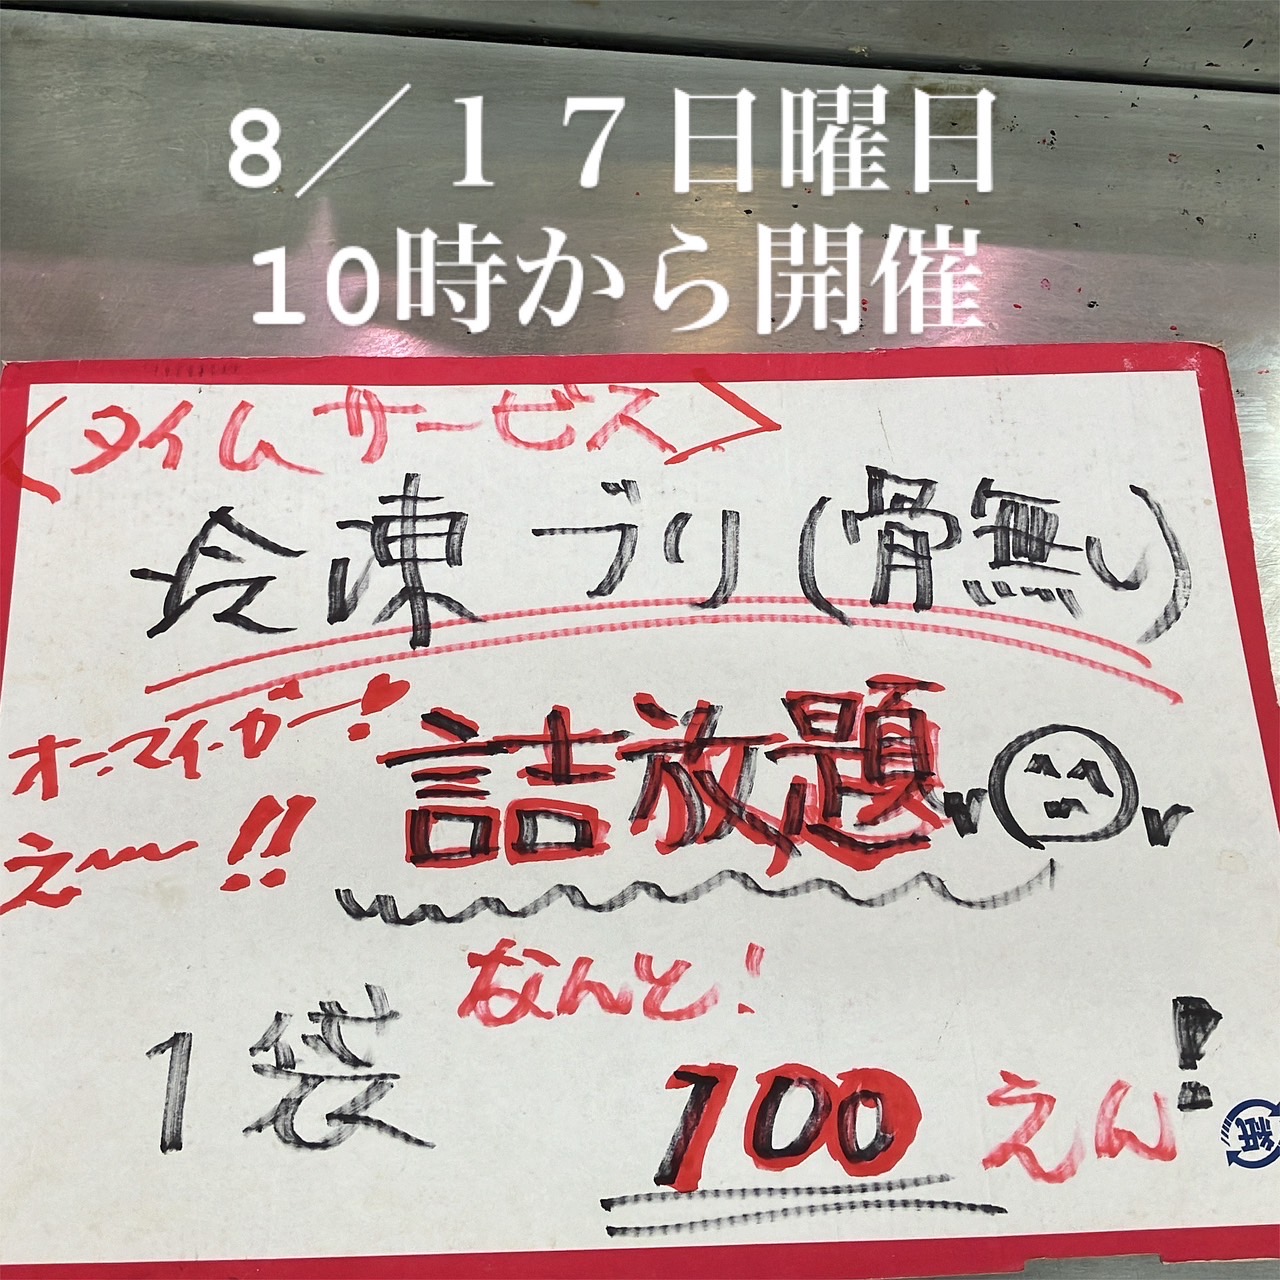 8／１７日曜日
10時から開催
〈タイムサービス〉
冷凍ブリ(骨無し)
オーマイガー！
詰放題
えー!!
なんと！
1袋
100えん！
紙